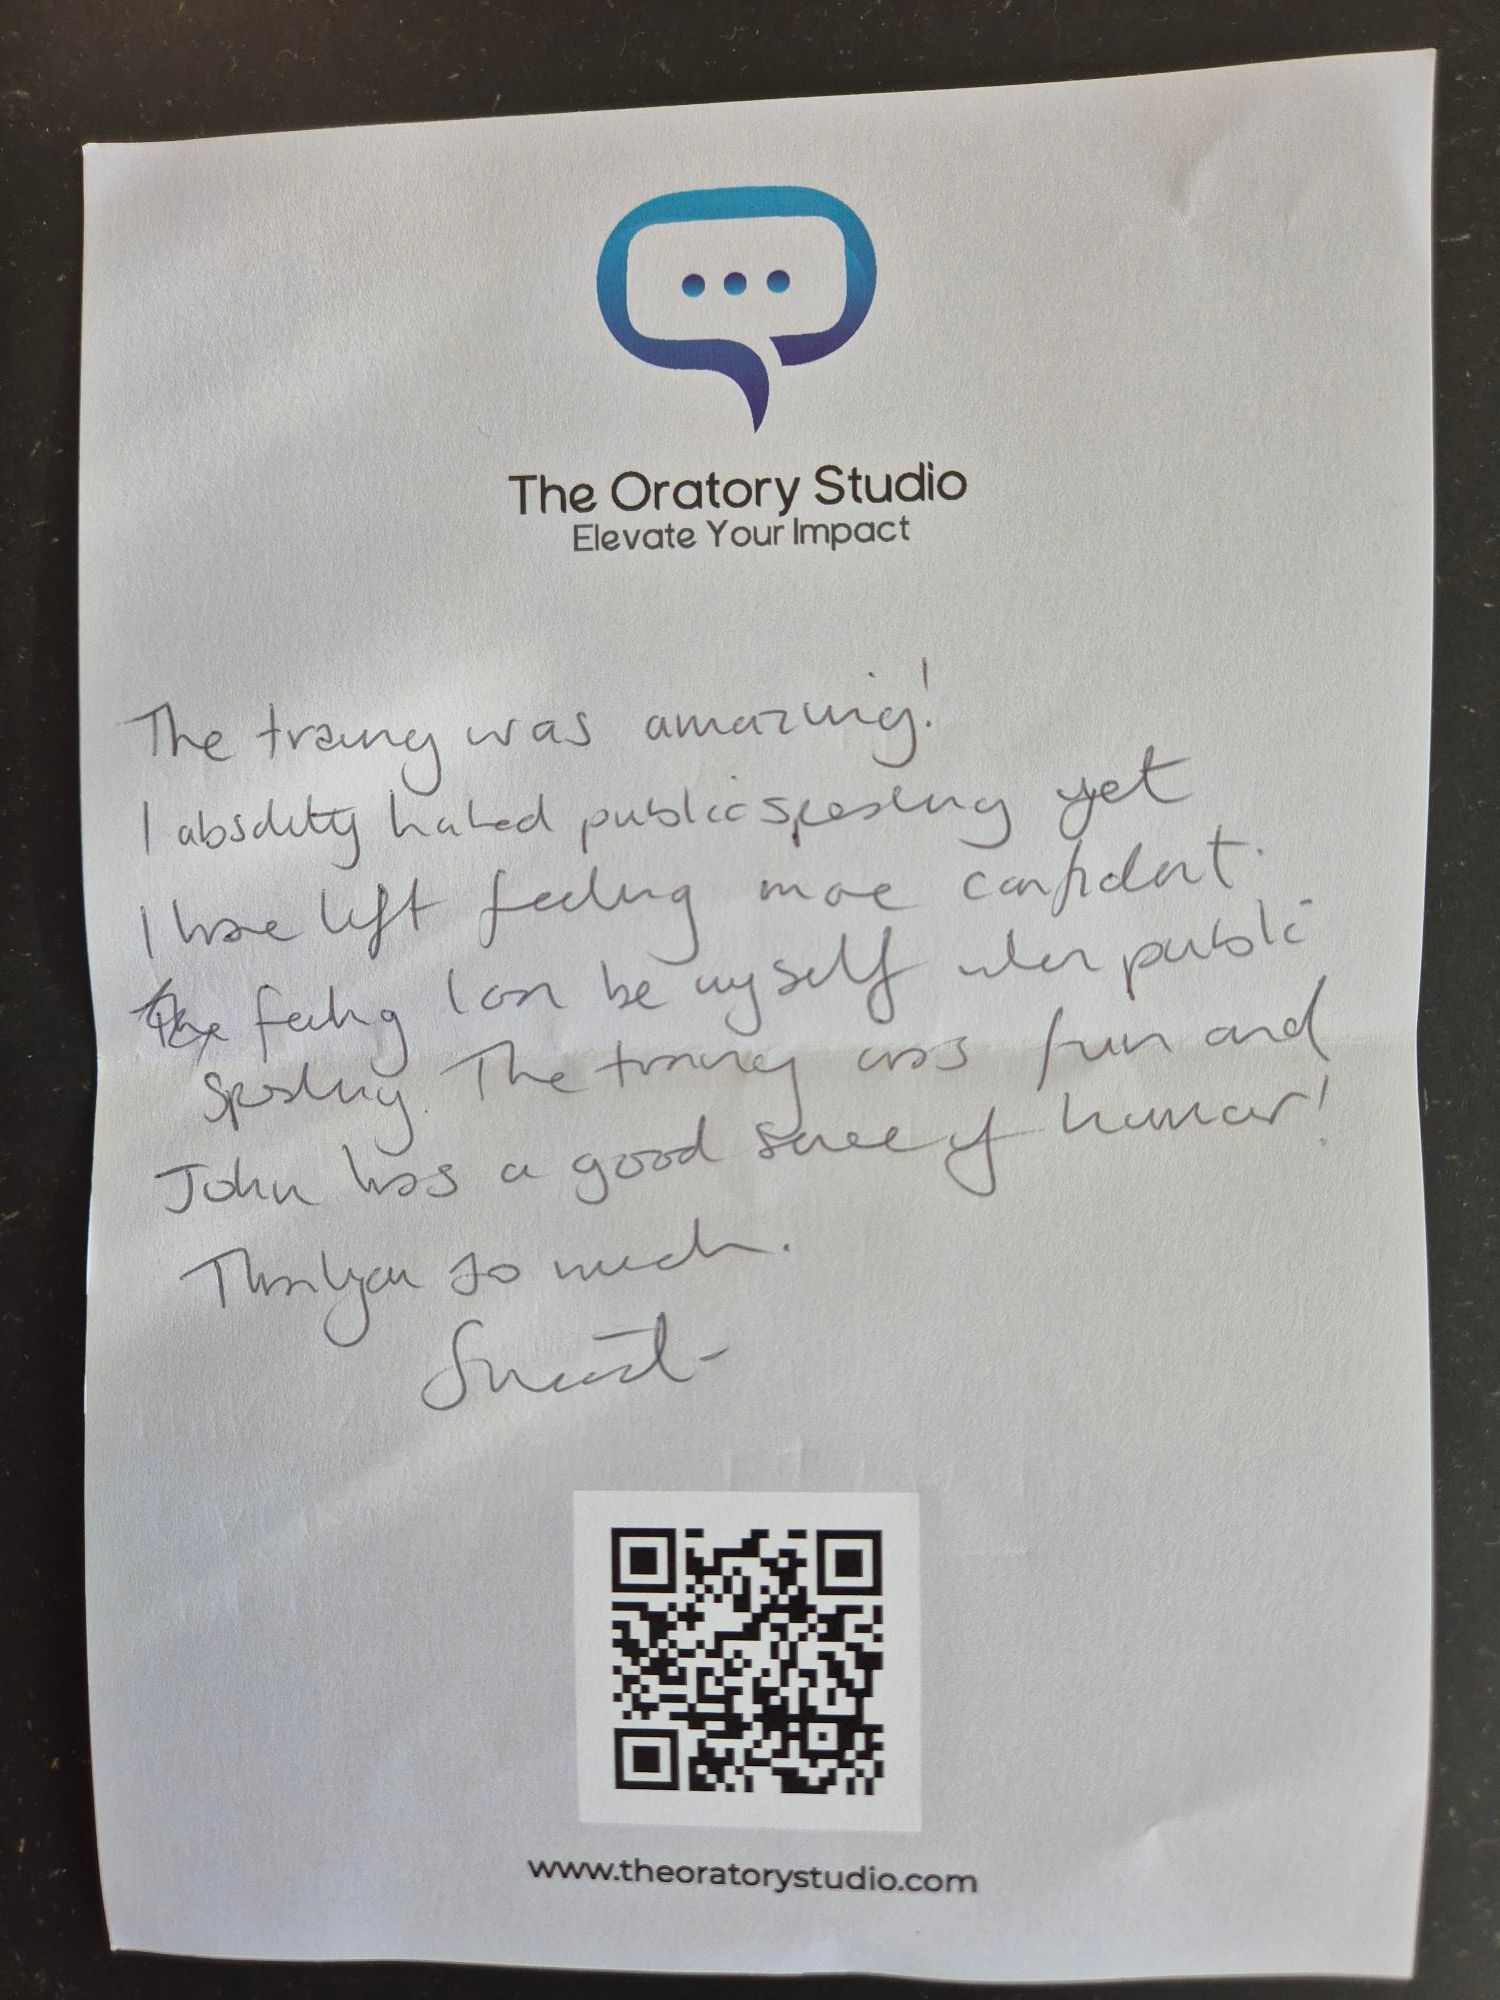 The Oratory Studio
Elevate Your Impact
The training was amazing!
I absolutely hated public speaking yet
I have left feeling more confident.
The feeling I can be myself when public
speaking. The training was fun and
John has a good sense of humour!
Thank you so much.
www.theoratorystudio.com